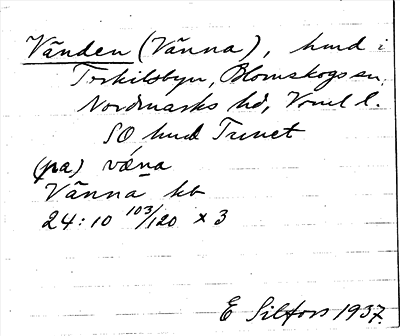 Vänden (Vänna), hmd i
Terkilsbyn, Blomskogs sn,
Nordmarks hd, Vrml l.
SO hmd Trinet
(pa) væ̂na
Vänna kb
24:10 103/120 x 3
E Silfors 1937.